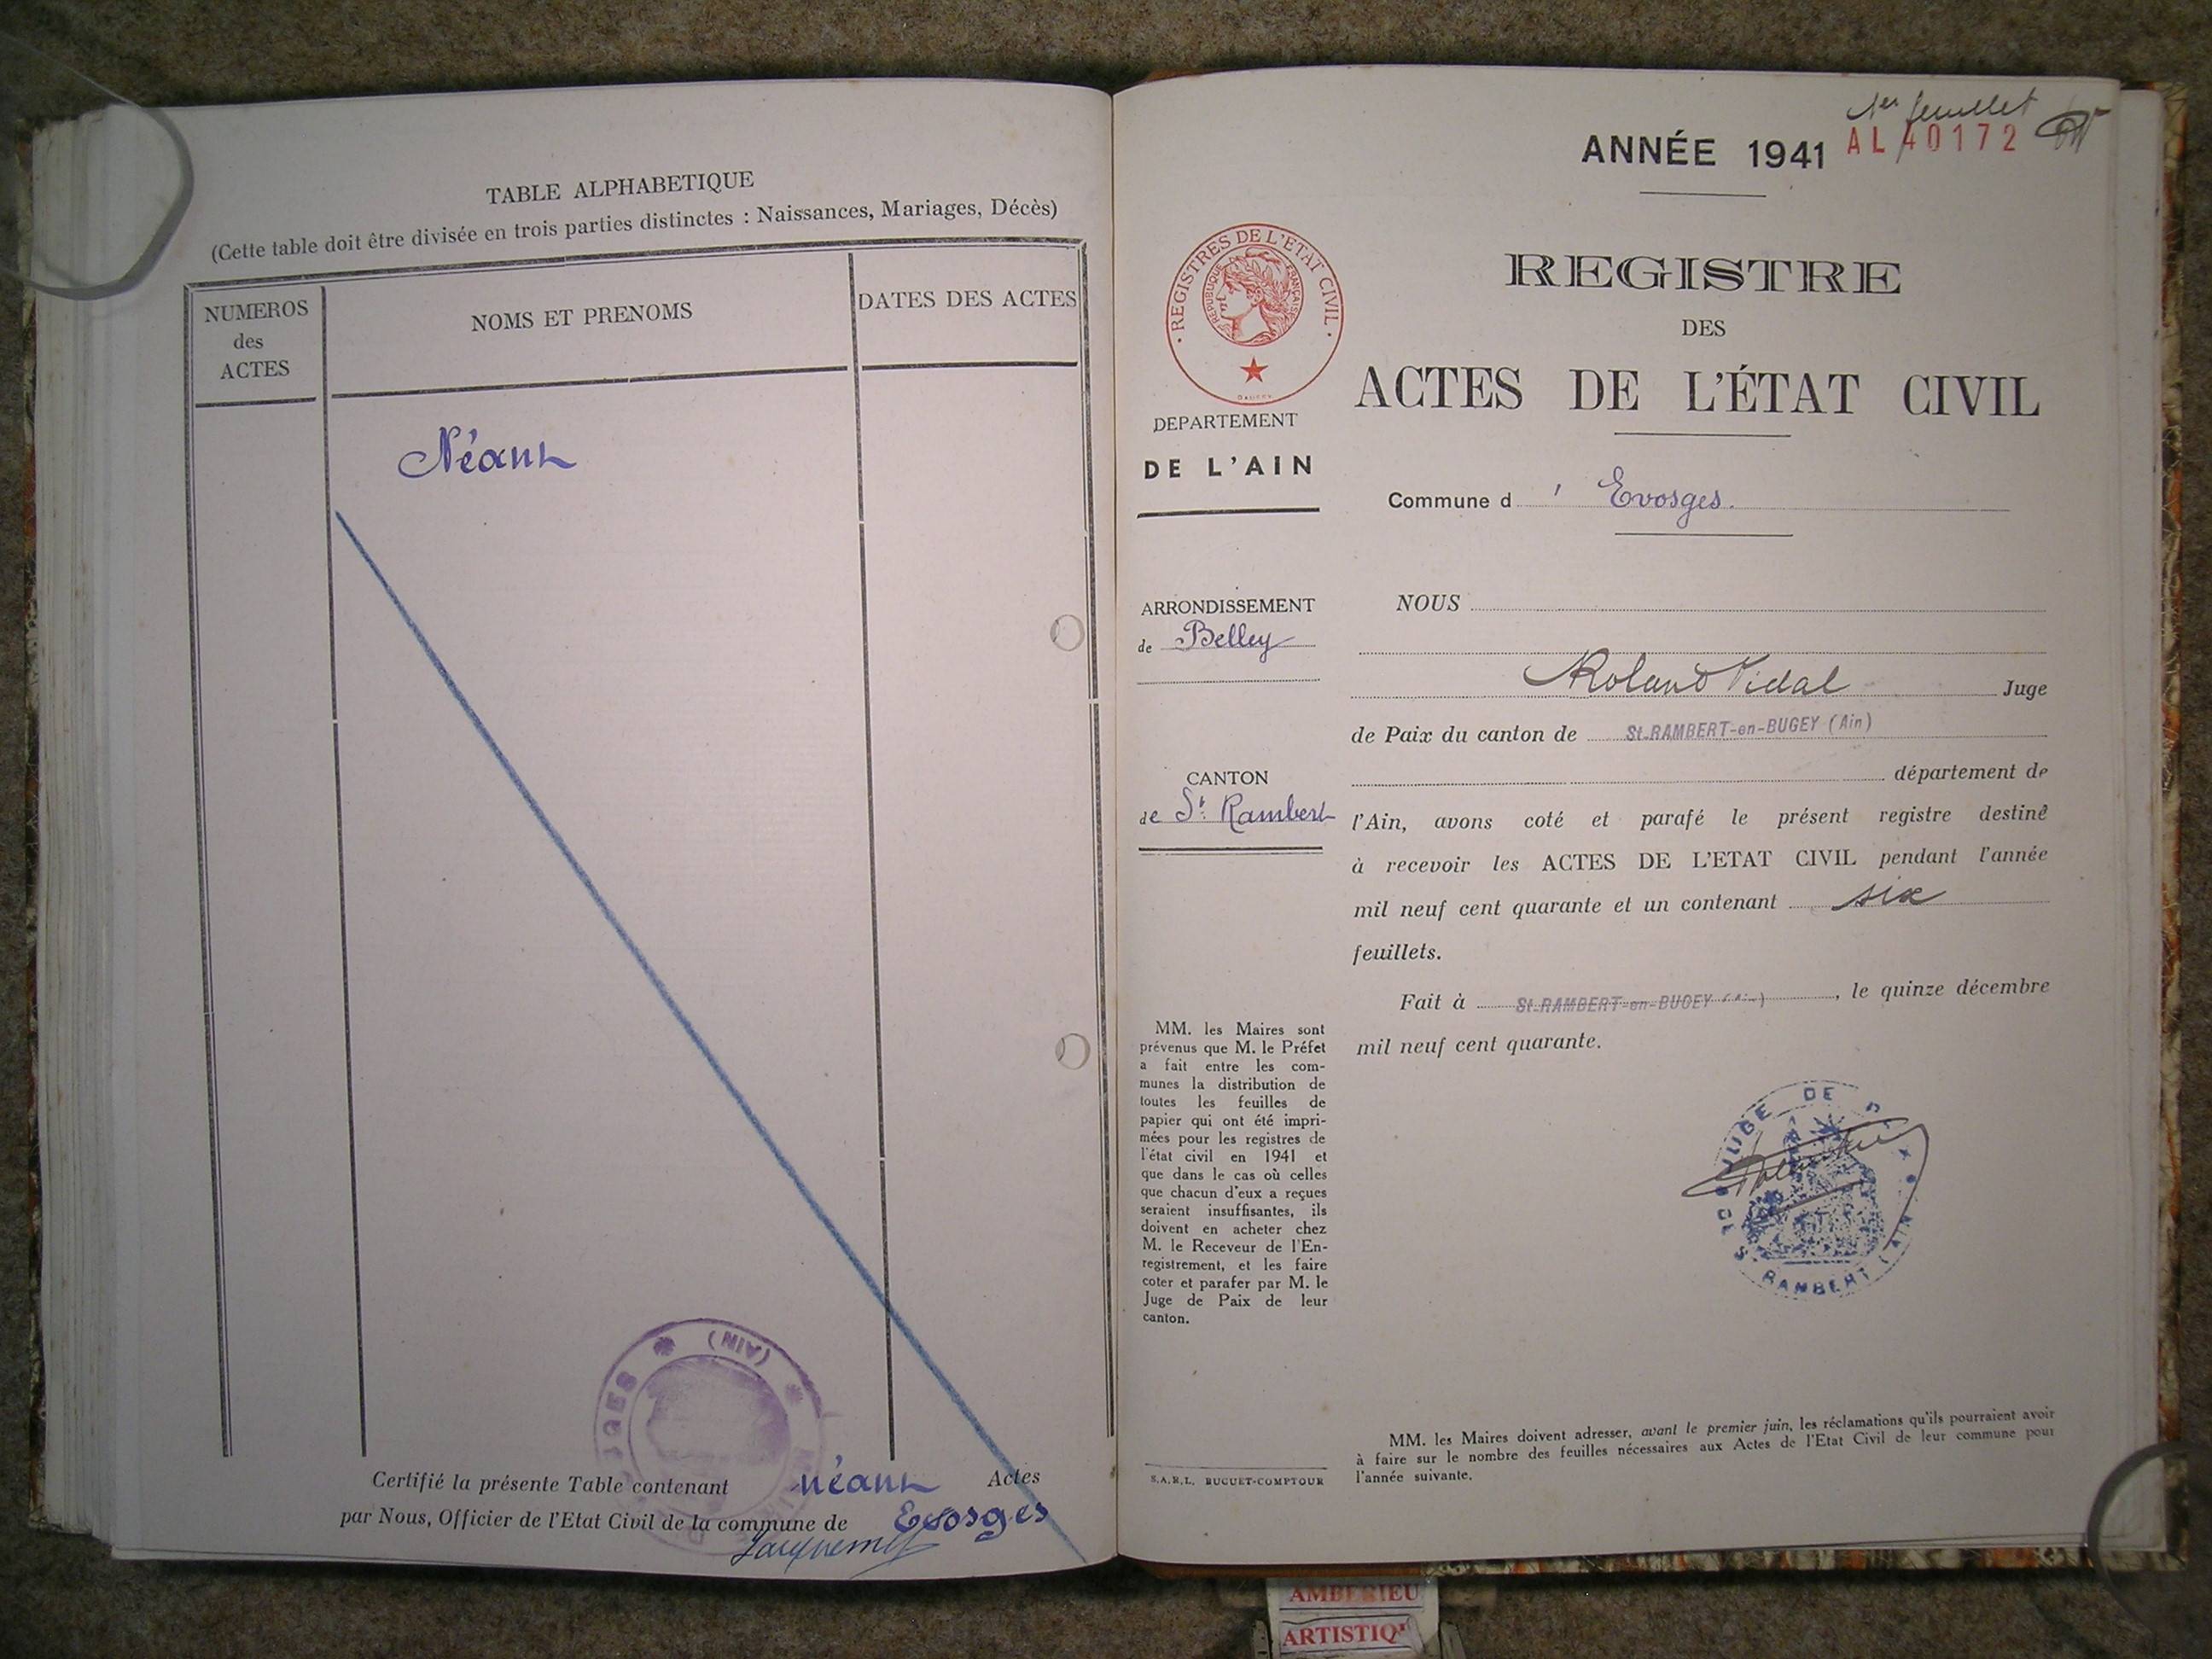 TABLE ALPHABETIQUE
(Cette table doit être divisée en trois parties distinctes : Naissances, Mariages, Décès)
NUMEROS
des
ACTES
NOMS ET PRENOMS
DATES DES ACTES
Néant
(AIN)
Certifié la présente Table contenant néant Actes
par Nous, Officier de l'Etat Civil de la commune de Evosges
Jacquemet
1er feuillet
ANNÉE 1941
AL 40172
REGISTRES DE L'ETAT CIVIL
REPUBLIQUE FRANÇAISE
REGISTRE
DES
ACTES DE L'ÉTAT CIVIL
DEPARTEMENT
DE L'AIN
Commune d ' Evosges.
ARRONDISSEMENT
de Belley
CANTON
de St. Rambert
NOUS
Roland Vidal Juge
de Paix du canton de St-RAMBERT-en-BUGEY (Ain)
département de
l'Ain, avons coté et parafé le présent registre destiné
à recevoir les ACTES DE L'ETAT CIVIL pendant l'année
mil neuf cent quarante et un contenant six
feuillets.
Fait à St-RAMBERT-en-BUGEY (Ain), le quinze décembre
mil neuf cent quarante.
JUGE DE PAIX
DE St RAMBERT (AIN
MM. les Maires sont
prévenus que M. le Préfet
a fait entre les com-
munes la distribution de
toutes les feuilles de
papier qui ont été impri-
mées pour les registres de
l'état civil en 1941 et
que dans le cas où celles
que chacun d'eux a reçues
seraient insuffisantes, ils
doivent en acheter chez
M. le Receveur de l'En-
registrement, et les faire
coter et parafer par M. le
Juge de Paix de leur
canton.
S.A.R.L. BUGUET-COMPTOUR
MM. les Maires doivent adresser, avant le premier juin, les réclamations qu'ils pourraient avoir
à faire sur le nombre des feuilles nécessaires aux Actes de l'Etat Civil de leur commune pour
l'année suivante.
AMBERIEU
ARTISTIQ